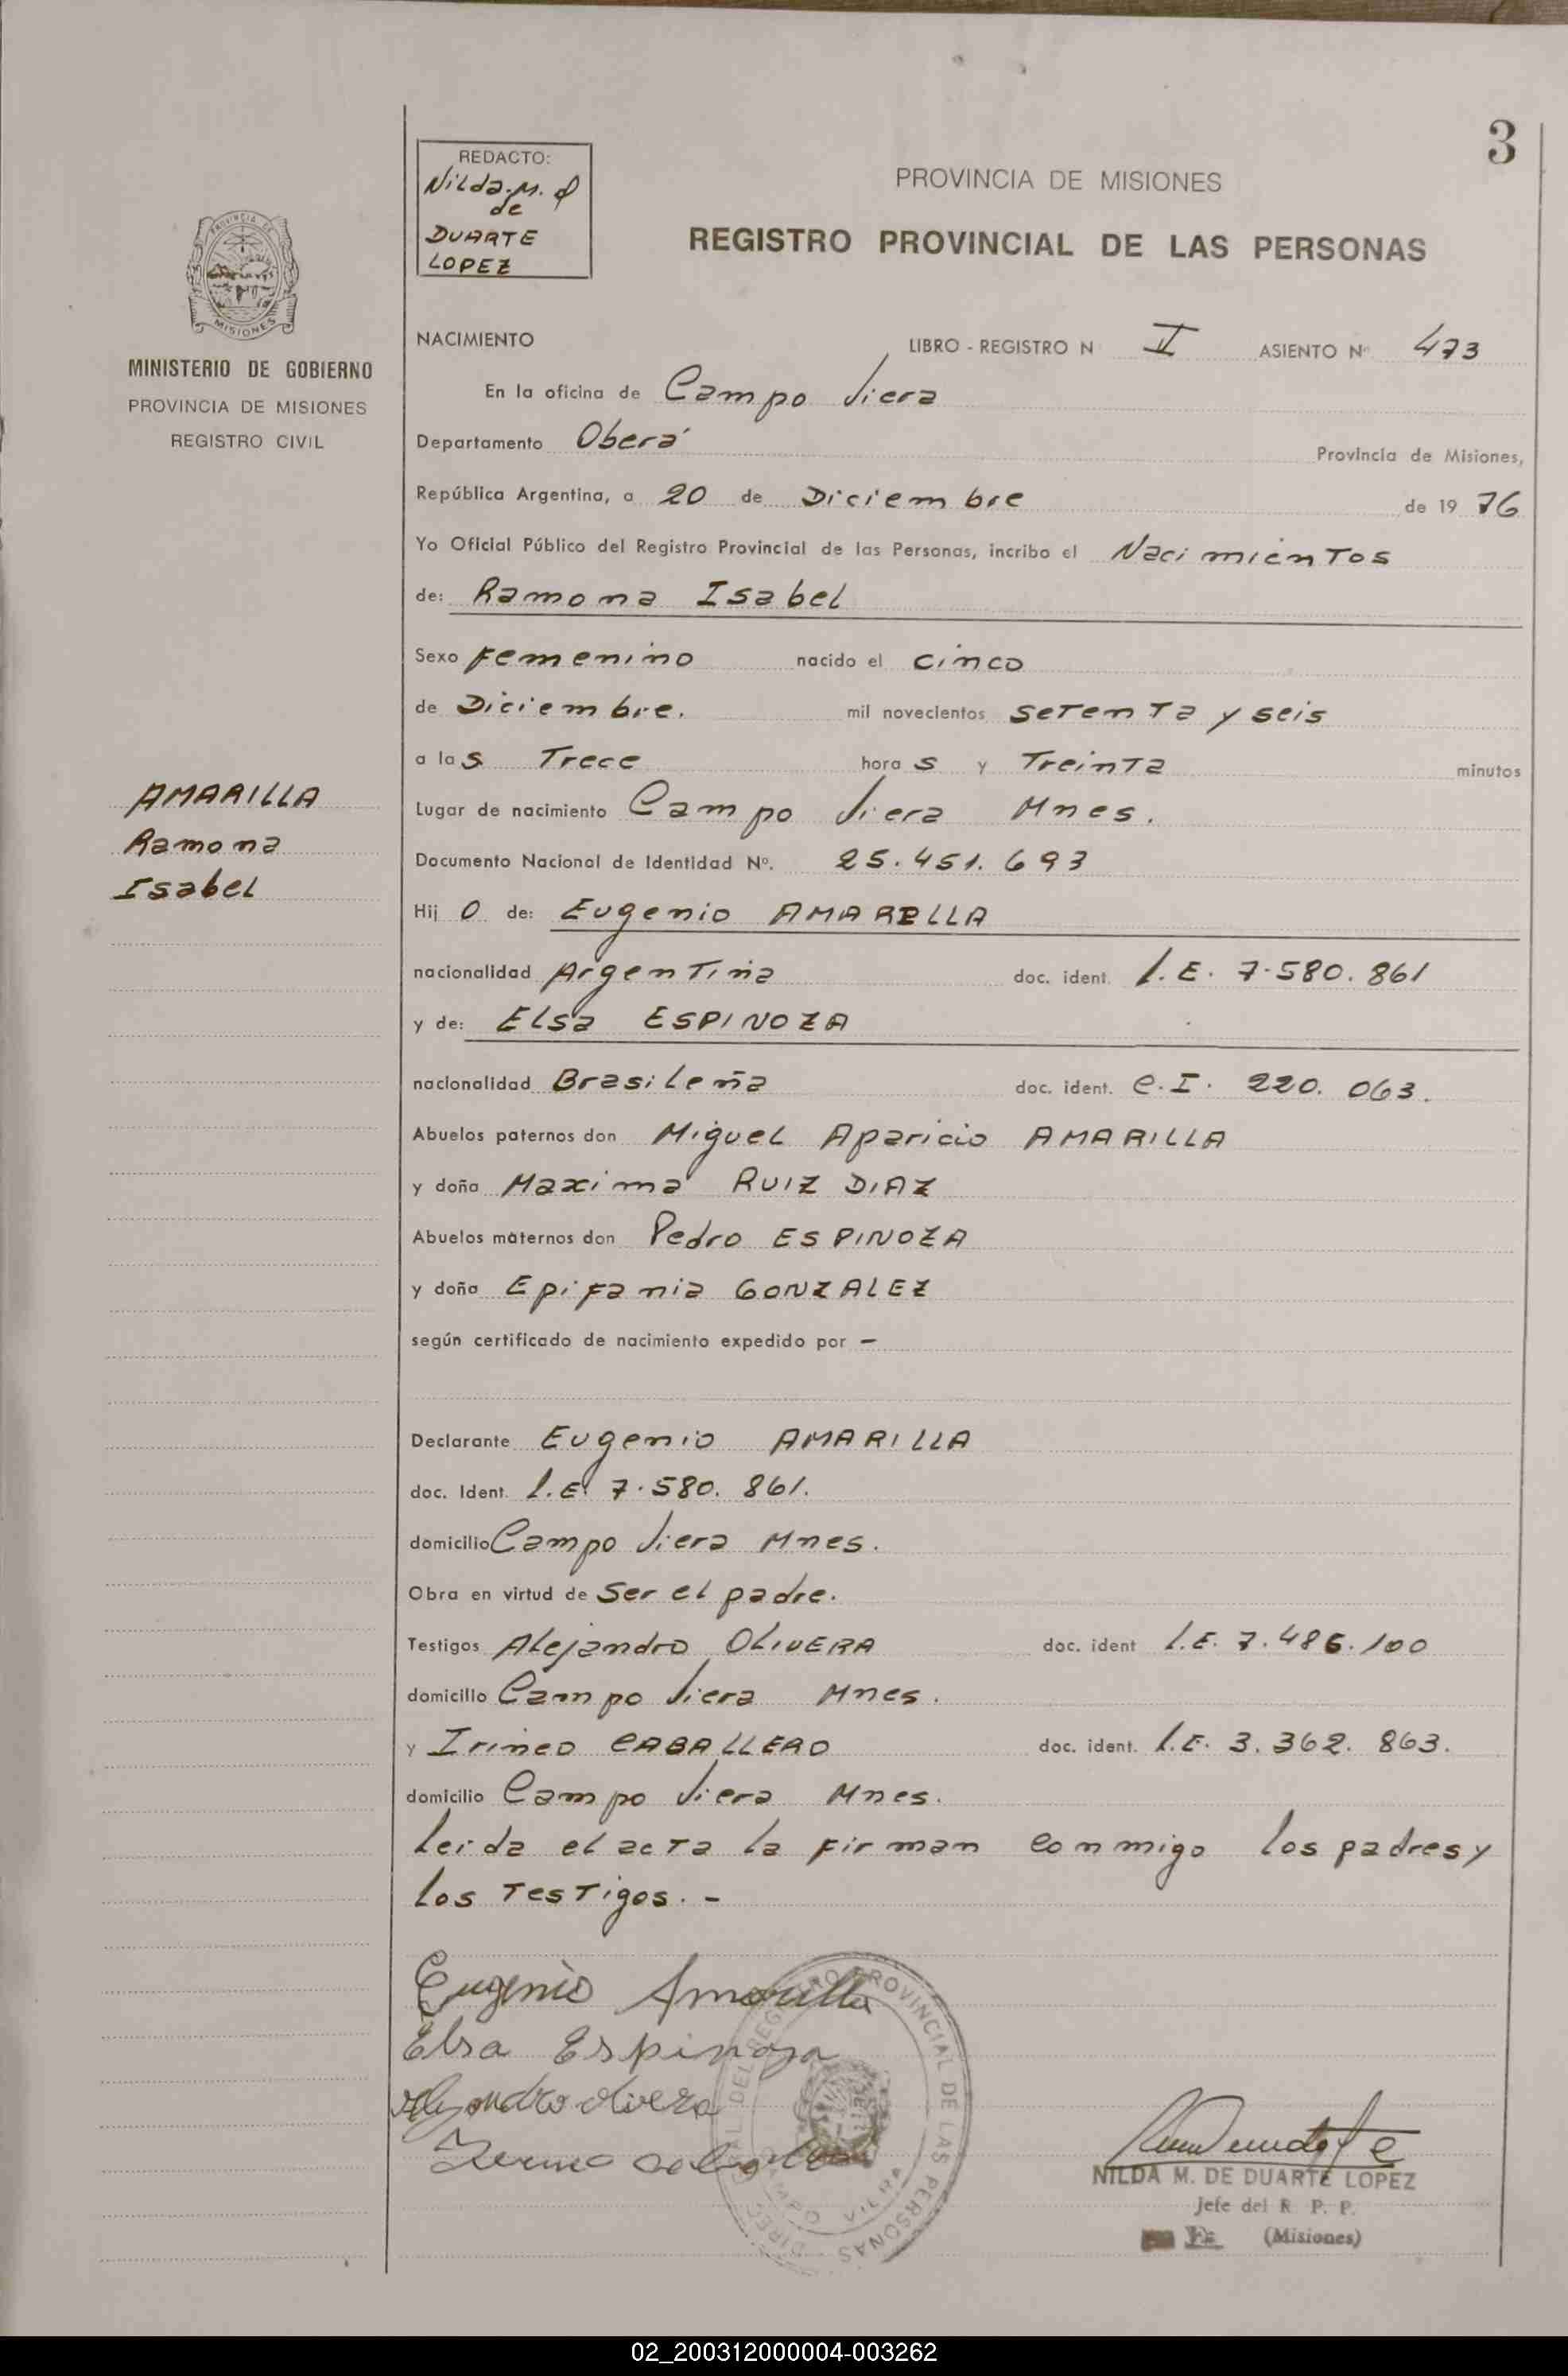 3
REDACTO:
Nilda. M. d
de
DUARTE
LOPEZ
PROVINCIA DE MISIONES
REGISTRO PROVINCIAL DE LAS PERSONAS
PROVINCIA DE
MISIONES
MINISTERIO DE GOBIERNO
PROVINCIA DE MISIONES
REGISTRO CIVIL
AMARILLA
Ramona
Isabel
NACIMIENTO LIBRO - REGISTRO N I ASIENTO Nº 473
En la oficina de Campo Viera
Departamento Oberá Provincia de Misiones,
República Argentina, a 20 de Diciembre de 19 76
Yo Oficial Público del Registro Provincial de las Personas, incribo el Nacimientos
de: Ramona Isabel
Sexo Femenino nacido el cinco
de Diciembre. mil novecientos setenta y seis
a las Trece horas y Treinta minutos
Lugar de nacimiento Campo Viera Mnes.
Documento Nacional de Identidad Nº. 25.451.693
Hijo de: Eugenio AMARELLA
nacionalidad Argentina doc. ident. L.E. 7.580.861
y de: Elsa ESPINOZA
nacionalidad Brasileña doc. ident. C.I. 220.063.
Abuelos paternos don Miguel Aparicio AMARILLA
y doña Maxima RUIZ DIAZ
Abuelos maternos don Pedro ESPINOZA
y doña Epifania GONZALEZ
según certificado de nacimiento expedido por —
Declarante Eugenio AMARILLA
doc. Ident. L.E. 7.580.861.
domicilio Campo Viera Mnes.
Obra en virtud de Ser el padre.
Testigos Alejandro OLIVERA doc. ident L.E. 7.486.100
domicilio Campo Viera Mnes.
y Irineo CABALLERO doc. ident. L.E. 3.362.863.
domicilio Campo Viera Mnes.
Leida el acta la firman conmigo los padres y
los Testigos. -
Eugenio Amarilla
Elsa Espinoza
Alejandro Olivera
REGISTRO PROVINCIAL DE LAS PERSONAS
CAMPO VIERA
NILDA M. DE DUARTE LOPEZ
Jefe del R. P. P.
(Misiones)
02_200312000004-003262